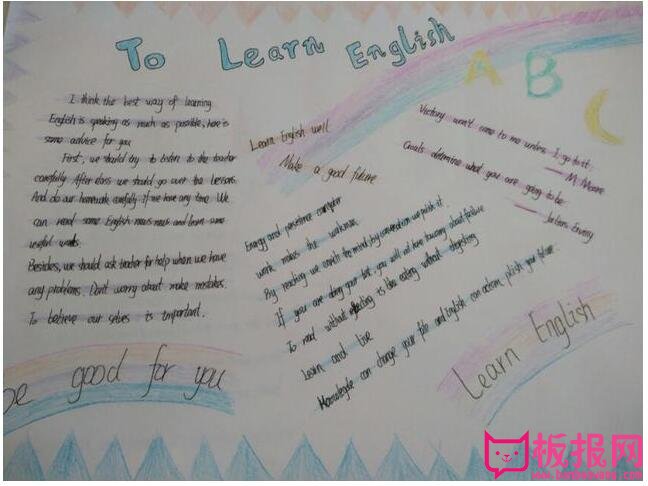 To Learn English
A B C
I think the best way of learning
English is speaking as much as possible, here is
some advice for you
First, we should try to listen to the teacher
carefully. After class we should go over the lessons.
And do our homework carefully. If we have any time. We
can read some English news and learn some
useful words.
Besides, we should ask teacher for help when we have
any problems. Don't worry about make mistakes.
To believe our selves is important.
be good for you
Learn English well
Make a good future
Energy and persistence conquer
work makes the workman
By reading we enrich the mind, by conversation we polish it.
If you are doing your best, you will not have worrying about failure
To read without reflecting is like eating without digesting
Learn and live
Knowledge can change your fate and English can accom plish your future.
Victory won't come to me unless I go to it.
—— M. Moore
Goals determine what you are going to be
—— Julius Erving
Learn English
板报网